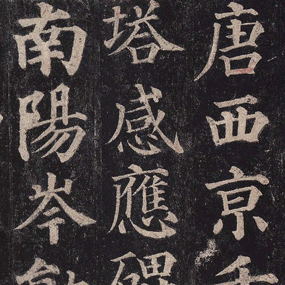 唐西亰千
塔感應碑
南陽岑